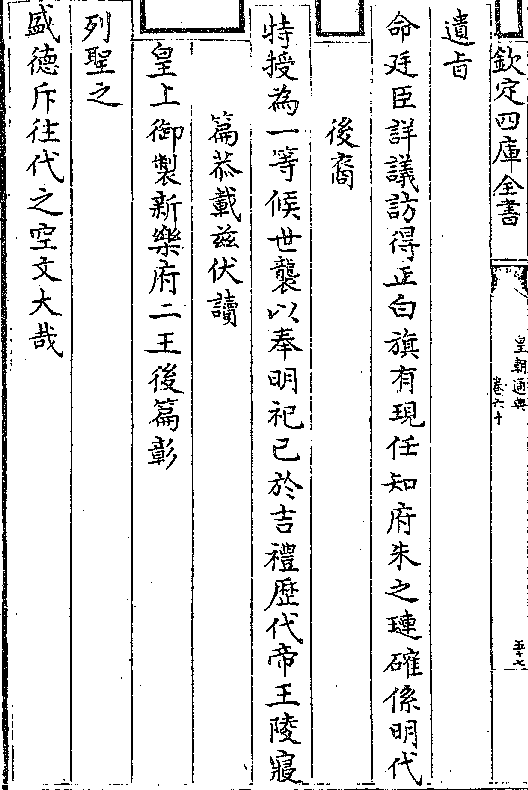 欽定四庫全書
皇朝通典
卷六十
遺旨
命廷臣詳議訪得正白旗有現任知府朱之璉確係明代
後裔
特授為一等候世襲以奉明祀已於吉禮歷代帝王陵寢
篇恭載兹伏讀
皇上御製新樂府二王後篇彰
列聖之
盛德斥往代之空文大哉